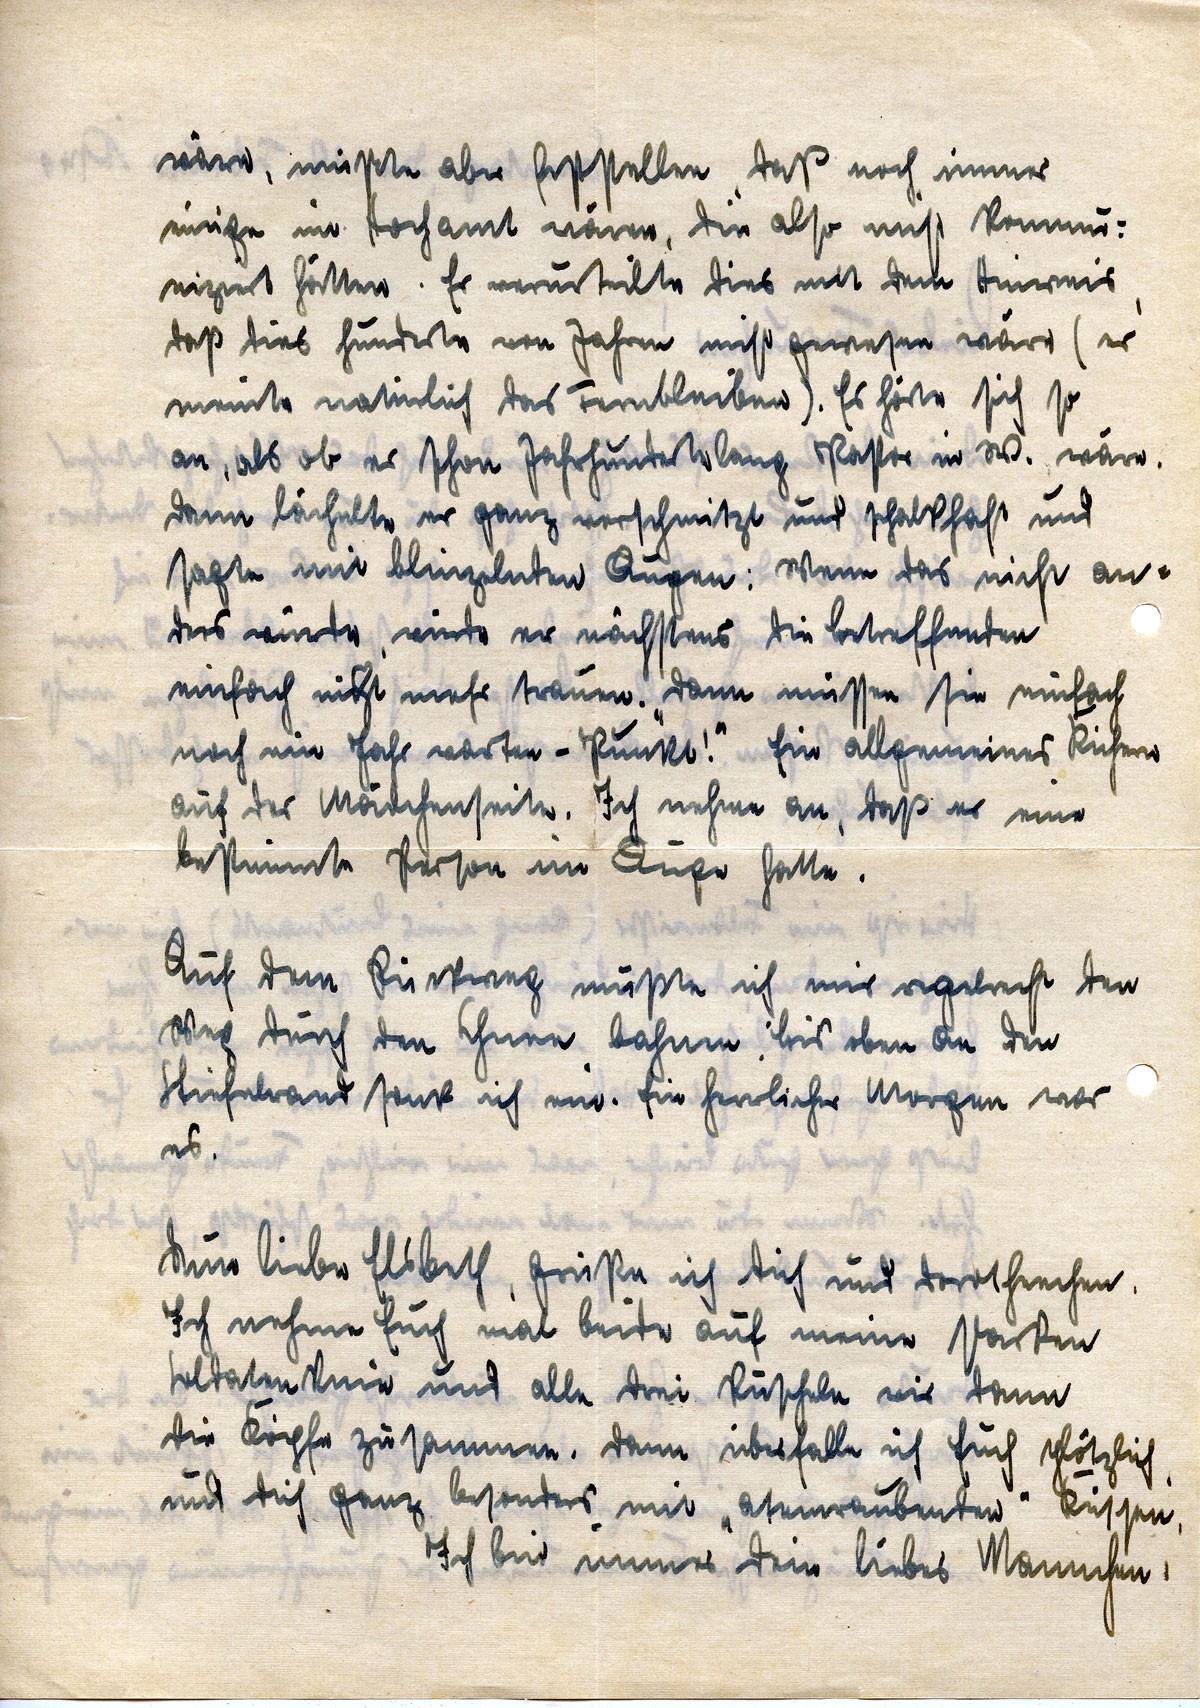 wäre, mußte aber feststellen, daß noch immer
einige im Hochamt wären, die also nicht kommu:
niziert hätten. Er verurteilte dies mit dem Hinweis,
daß dies hunderte von Jahren nicht gewesen wäre (er
meinte natürlich das Fernbleiben). Es hörte sich so
an, als ob er schon Jahrhundertelang Pastor in W. wäre.
Dann lächelte er ganz verschmitzt und schalkhaft und
sagte mit blinzelnden Augen: Wenn das nicht an-
ders würde, würde er nächstens die betreffenden
einfach nicht mehr trauen. „Dann müssen sie einfach
noch ein Jahr warten - Punkt!“ Ein allgemeines Kichern
auf der Mädchenseite. Ich nehme an, daß er eine
bestimmte Person im Auge hatte.
Auf dem Rückweg mußte ich mir regelrecht den
Weg durch den Schnee bahnen, bis oben an den
Stiefelrand sank ich ein. Ein herrlicher Morgen war
es.
Nun liebe Elsbeth, grüße ich Dich und Dorotheechen.
Ich nehme Euch mal beide auf meine starken
Soldatenknie und alle drei kuscheln wir dann
die Köpfe zusammen. Dann überfalle ich Euch plötzlich,
und Dich ganz besonders mit „atemraubenden“ Küssen.
Ich bin immer Dein liebes Mannchen.